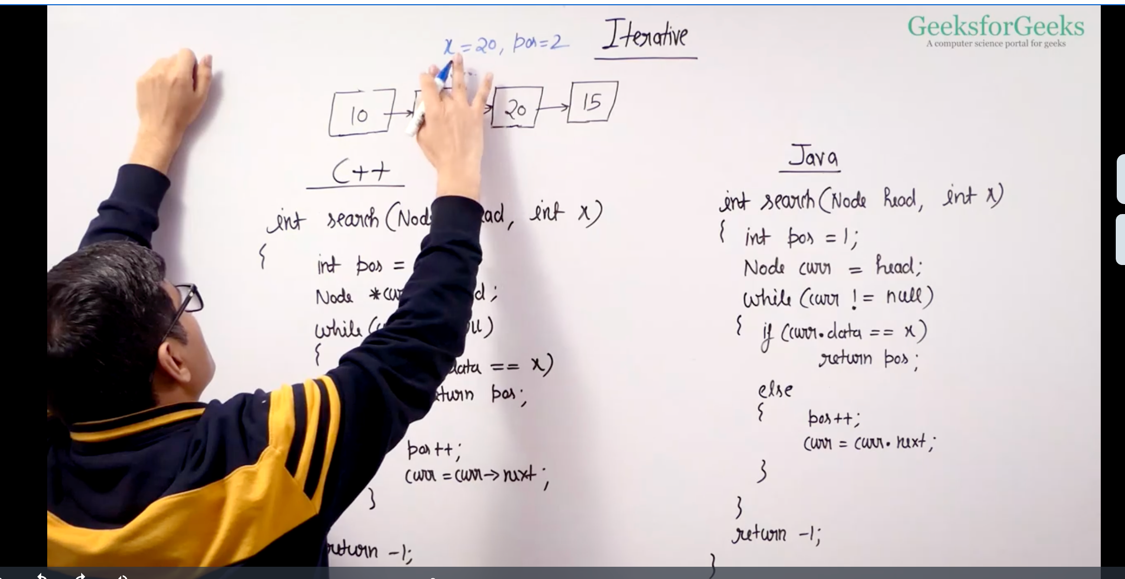 GeeksforGeeks
A computer science portal for geeks
Iterative
x = 20, pos=2
10 20 15
C++
int search(Nod ead, int x)
{
int pos =
Node *cu d;
while(
{
data == x)
return pos;
pos++;
curr = curr→next;
}
return -1;
Java
int search(Node head, int x)
{ int pos = 1;
Node curr = head;
while (curr != null)
{ if (curr.data == x)
return pos;
else
{ pos++;
curr = curr.next;
}
}
return -1;
}